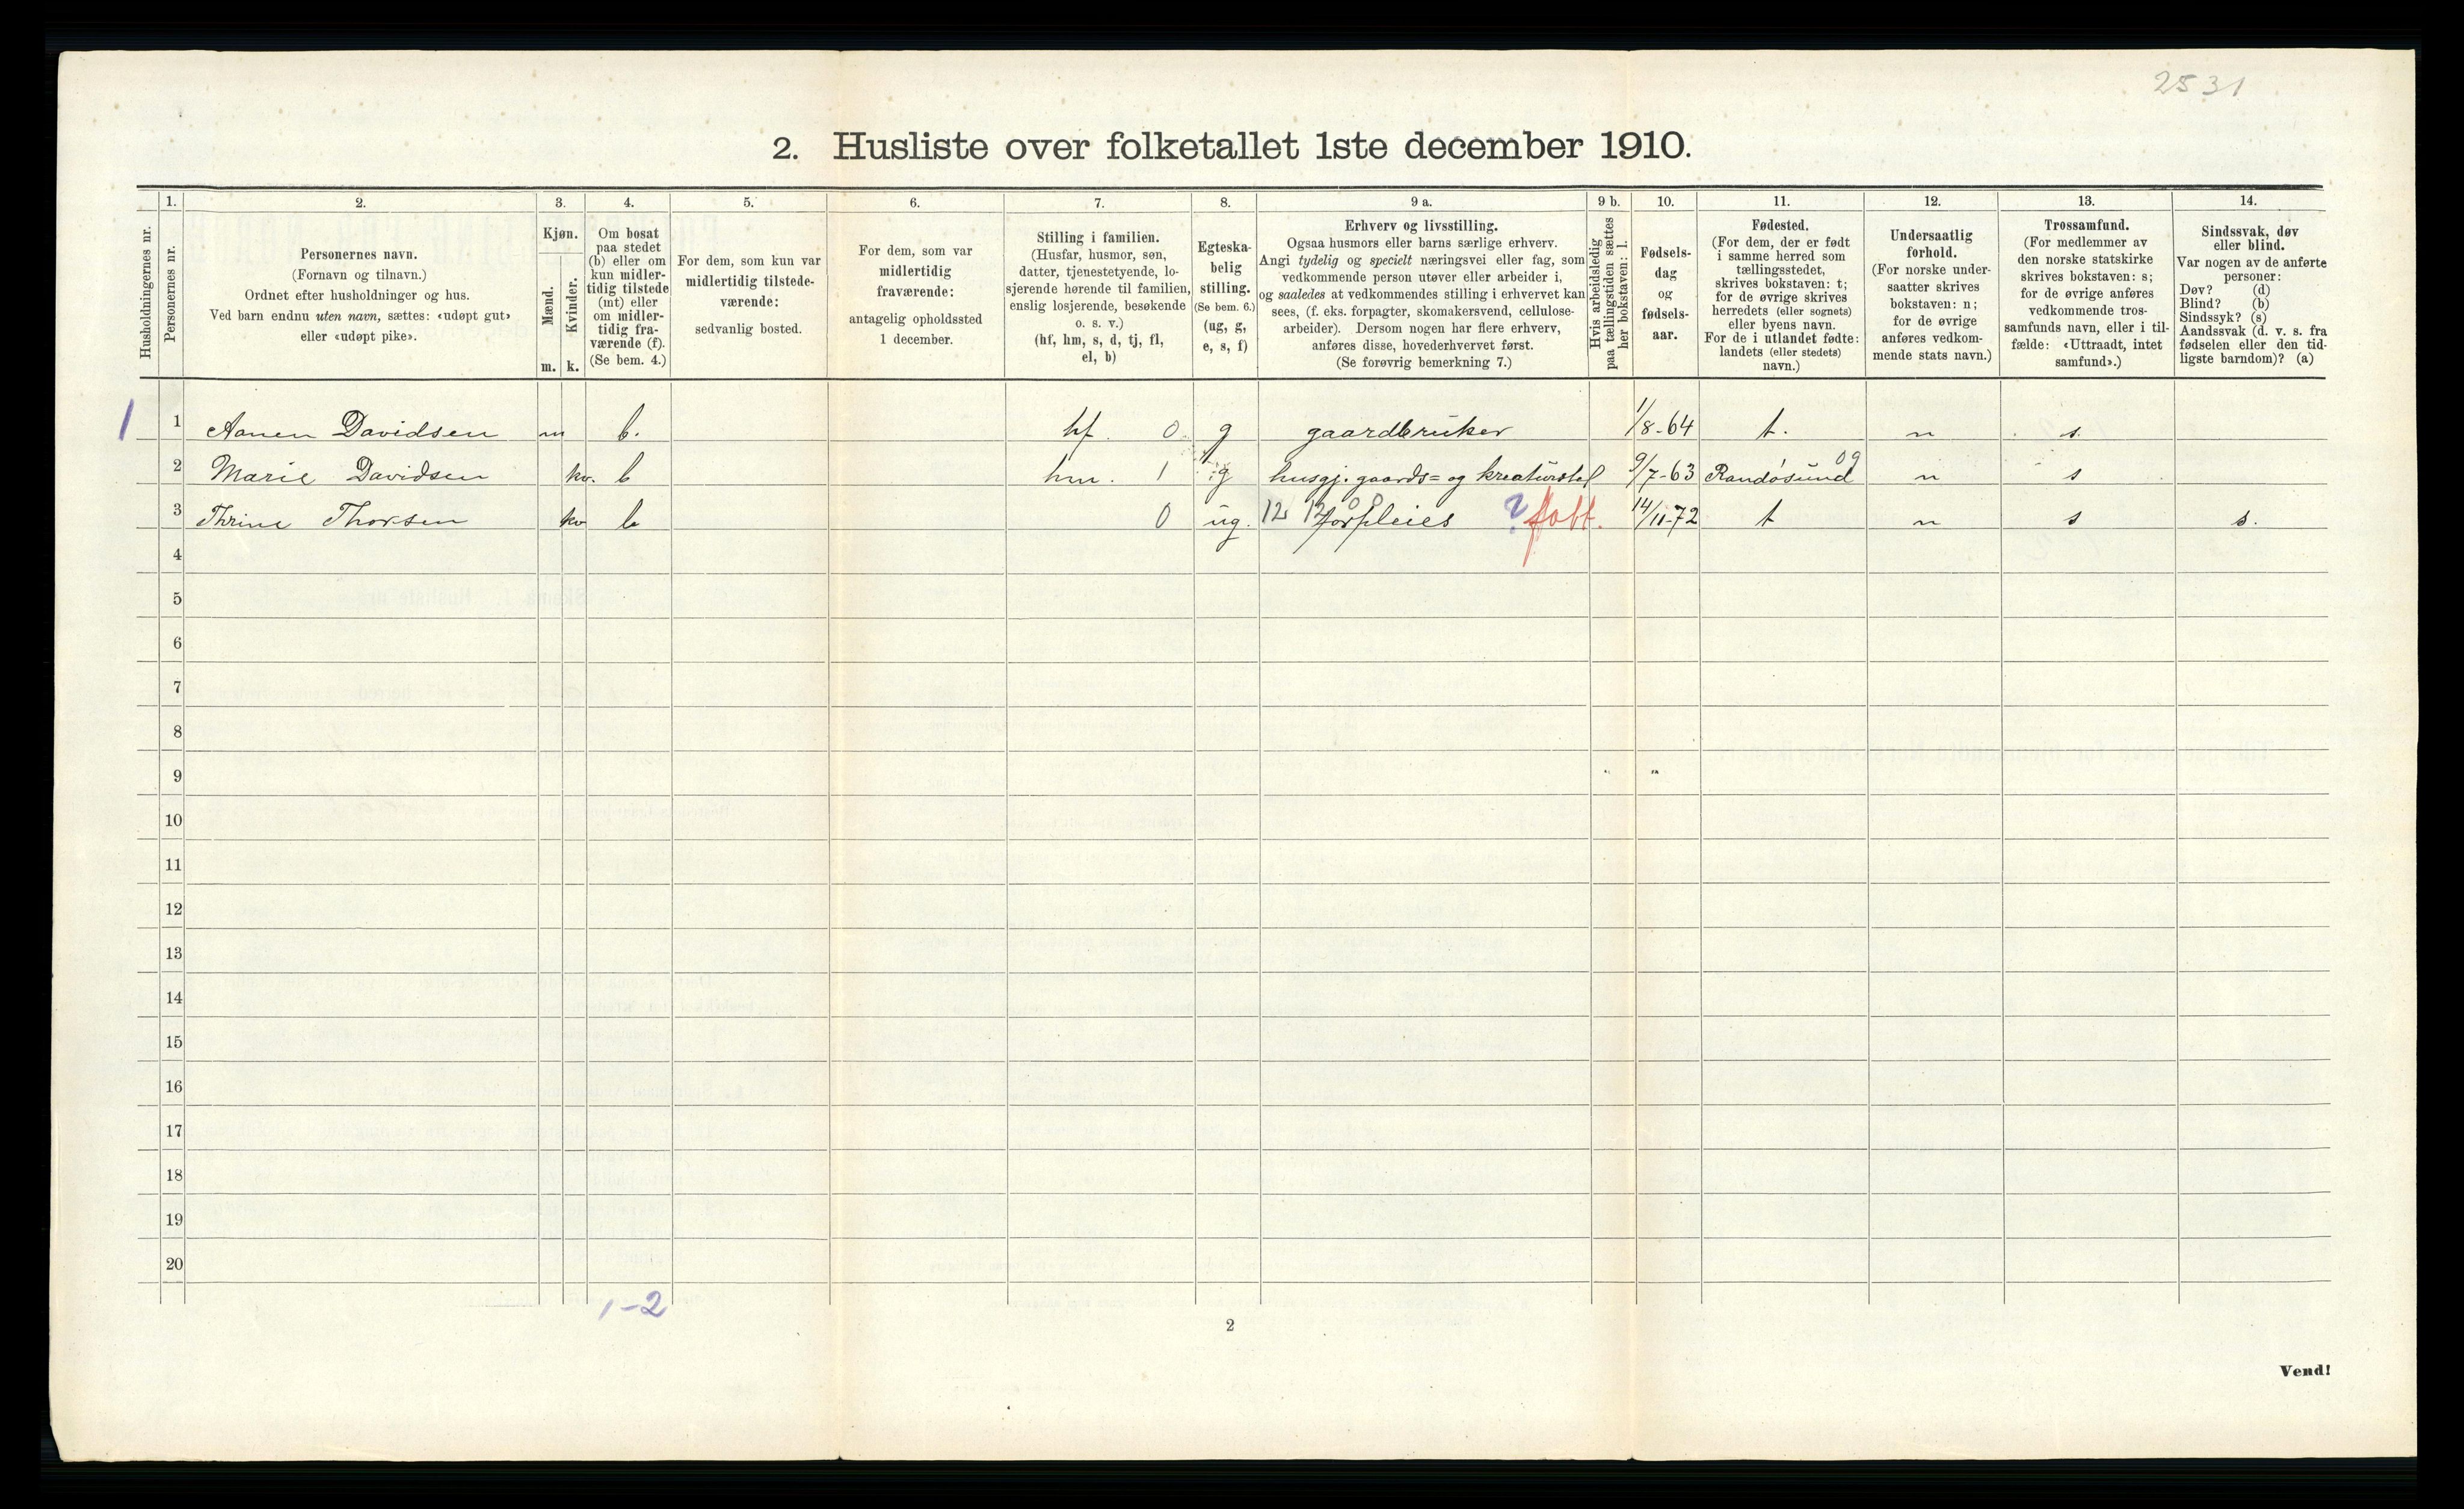 2531
2. Husliste over folketallet 1ste december 1910.
Husholdningernes nr.
1.
Personernes nr.
2.
Personernes navn.
(Fornavn og tilnavn.)
Ordnet efter husholdninger og hus.
Ved barn endnu uten navn, sættes: «udøpt gut»
eller «udøpt pike».
3.
Kjøn.
Mænd.
Kvinder.
m. k.
4.
Om bosat
paa stedet
(b) eller om
kun midler-
tidig tilstede
(mt) eller
om midler-
tidig fra-
værende (f).
(Se bem. 4.)
5.
For dem, som kun var
midlertidig tilstede-
værende:
sedvanlig bosted.
6.
For dem, som var
midlertidig
fraværende:
antagelig opholdssted
1 december.
7.
Stilling i familien.
(Husfar, husmor, søn,
datter, tjenestetyende, lo-
sjerende hørende til familien,
enslig losjerende, besøkende
o. s. v.)
(hf, hm, s, d, tj, fl,
el, b)
8.
Egteska-
belig
stilling.
(Se bem. 6.)
(ug, g,
e, s, f)
9 a.
Erhverv og livsstilling.
Ogsaa husmors eller barns særlige erhverv.
Angi tydelig og specielt næringsvei eller fag, som
vedkommende person utøver eller arbeider i,
og saaledes at vedkommendes stilling i erhvervet kan
sees, (f. eks. forpagter, skomakersvend, cellulose-
arbeider). Dersom nogen har flere erhverv,
anføres disse, hovederhvervet først.
(Se forøvrig bemerkning 7.)
9 b.
Hvis arbeidsledig
paa tællingstiden sættes
her bokstaven: l.
10.
Fødsels-
dag
og
fødsels-
aar.
11.
Fødested.
(For dem, der er født
i samme herred som
tællingsstedet,
skrives bokstaven: t;
for de øvrige skrives
herredets (eller sognets)
eller byens navn.
For de i utlandet fødte:
landets (eller stedets)
navn.)
12.
Undersaatlig
forhold.
(For norske under-
saatter skrives
bokstaven: n;
for de øvrige
anføres vedkom-
mende stats navn.)
13.
Trossamfund.
(For medlemmer av
den norske statskirke
skrives bokstaven: s;
for de øvrige anføres
vedkommende tros-
samfunds navn, eller i til-
fælde: «Uttraadt, intet
samfund».)
14.
Sindssvak, døv
eller blind.
Var nogen av de anførte
personer:
Døv? (d)
Blind? (b)
Sindssyk? (s)
Aandssvak (d. v. s. fra
fødselen eller den tid-
ligste barndom)? (a)
1 1 Aanen Davidsen m b. hf. 0 g gaardbruker 1/8-64 t. n s.
2 Marie Davidsen kv. b hm. 1 g husgj. gaards= og kreaturstel 9/7-63 Randøsund 09 n s
3 Thrine Thorsen kv b 0 ug. 12 12 forpleies ? fatt. 14/11-72 t n s s.
4
5
6
7
8
9
10
11
12
13
14
15
16
17
18
19
20
1-2
2
Vend!